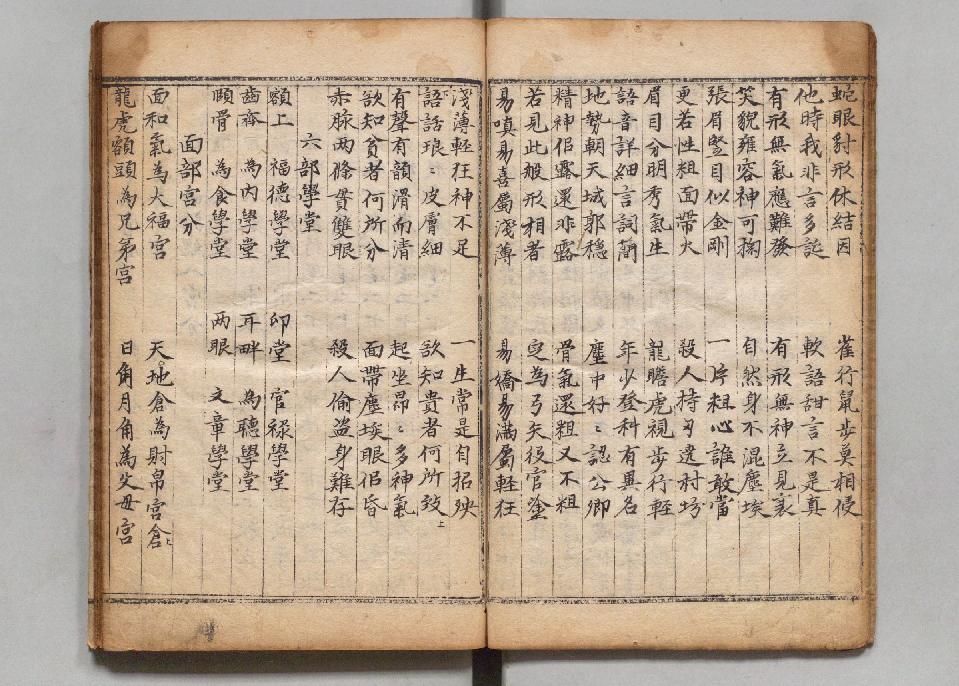 蛇眼射形休結因　雀行鼠步莫相侵
他時我非言多誕　軟語甜言不是真
有形無氣應難發　有形無神立見衰
笑貌雍容神可掬　自然身不混塵埃
張眉豎目似金剛　一片粗心誰敢當
更若性粗面帶火　殺人持刃選村坊
眉目分明秀氣生　龍瞻虎視步行輕
語音詳細言詞簡　年少登科有異名
地勢朝天城郭穩　塵中好〻認公卿
精神侶露還非露　骨氣還粗又不粗
若見此般形相者　定為弓矢後官塗
易嗔易喜屬淺薄　易嬌易滿屬輕狂
淺薄輕狂神不足　一生常是自招殃
語話琅〻皮膚細　欲知貴者何所致上
有聲有韻滑而清　起坐昂〻多神氣
欲知貧者何所分　面帶塵埃眼侶昏
赤脉两條貫雙眼　殺人偷盗身難存
六部學堂
額上　福德學堂　印堂　官祿學堂
齒齊　為內學堂　耳畔　為聽學堂
頤骨　為食學堂　两眼　文章學堂
面部宮分
面和氣為大福宮　天地倉為財帛宮倉上
龍虎額頭為兄第宮　日角月角為父母宮